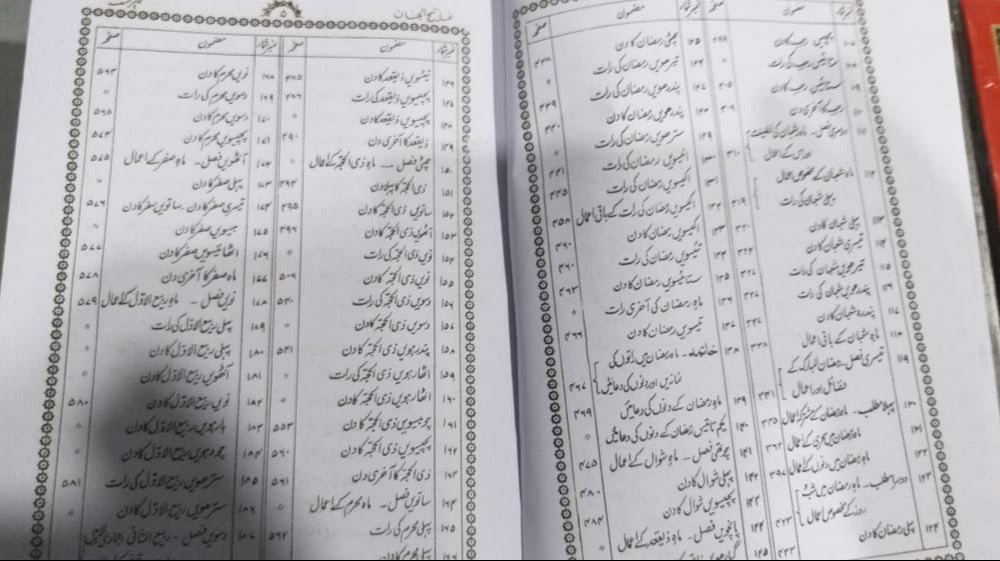 نمبر شمار مضمون صفحہ
۱۰۷ پچیس رجب کا دن ۲۹۹
۱۰۸ ستائیس رجب کی رات "
۱۰۹ ستائیس رجب کا دن ۳۰۵
۱۱۰ رجب کا آخری دن ۳۰۹
۱۱۱ دوسری فصل - ماہ شعبان کی فضیلت
اور اس کے اعمال ۳۱۰
۱۱۲ ماہ شعبان کے مخصوص اعمال
پہلی شعبان کی رات ۳۱۹
۱۱۳ پہلی شعبان کا دن ۳۲۰
۱۱۴ تیسری شعبان کا دن ۳۲۲
۱۱۵ تیرھویں شعبان کی رات
۱۱۶ پندرھویں شعبان کی رات ۳۲۷
۱۱۷ پندرہ شعبان کا دن ۳۳۷
۱۱۸ ماہ شعبان کے باقی اعمال ۳۳۸
۱۱۹ تیسری فصل - رمضان المبارک کے
فضائل اور اعمال
۱۲۰ پہلا مطلب - ماہ رمضان کے مشترکہ اعمال ۳۴۵
۱۲۱ ماہ رمضان میں سحری کے اعمال
۱۲۲ ماہ رمضان میں دنوں کے اعمال ۳۹۷
۱۲۳ دوسرا مطلب - ماہ رمضان میں شب
روز کے مخصوص اعمال ۴۲۳
۱۲۴ پہلی رمضان کا دن ۴۳۳
نمبر شمار مضمون صفحہ
۱۲۵ چھٹی رمضان کا دن
۱۲۶ تیرھویں رمضان کی رات ۴۳۸
۱۲۷ پندرھویں رمضان کی رات
۱۲۸ پندرھویں رمضان کا دن ۴۳۹
۱۲۹ سترھویں رمضان کی رات ۴۴۰
۱۳۰ انیسویں رمضان کی رات
۱۳۱ اکیسویں رمضان کی رات ۴۴۱
۱۳۲ اکیسویں رمضان کی رات کے باقی اعمال ۴۴۵
۱۳۳ اکیسویں رمضان کا دن ۴۵۸
۱۳۴ تیئسویں رمضان کی رات ۴۶۰
۱۳۵ ستائیسویں رمضان کا دن ۴۶۰
۱۳۶ ماہ رمضان کی آخری رات ۴۶۳
۱۳۷ تیسویں رمضان کا دن ۴۶۶
۱۳۸ خاتمہ - ماہ رمضان میں راتوں کی
نمازیں اور دنوں کی دعائیں ۴۶۷
۱۳۹ ماہ رمضان کے دنوں کی دعائیں ۴۶۹
۱۴۰ یکم تا تیس رمضان کے دنوں کی دعائیں
۱۴۱ چوتھی فصل - ماہ شوال کے اعمال ۴۷۵
۱۴۲ پہلی شوال کا دن ۴۸۰
۱۴۳ پچیسویں شوال کا دن ۴۸۴
۱۴۴ پانچویں فصل - ماہ ذیقعد کے اعمال "
۱۴۵
مفاتیح الجنان ۵
نمبر شمار مضمون صفحہ
۱۴۶ تیئسویں ذیقعد کا دن ۴۸۵
۱۴۷ پچیسویں ذیقعد کی رات ۴۸۶
۱۴۸ پچیسویں ذیقعد کا دن "
۱۴۹ ذیقعد کا آخری دن ۴۹۰
۱۵۰ چھٹی فصل - ماہ ذی الحجّہ کے اعمال "
۱۵۱ ذی الحجّہ کا پہلا دن ۴۹۴
۱۵۲ ساتویں ذی الحجّہ کا دن ۴۹۵
۱۵۳ آٹھویں ذی الحجّہ کا دن ۴۹۶
۱۵۴ نویں ذی الحجّہ کی رات "
۱۵۵ نویں ذی الحجّہ کا دن ۵۰۶
۱۵۶ دسویں ذی الحجّہ کی رات ۵۴۰
۱۵۷ دسویں ذی الحجّہ کا دن "
۱۵۸ پندرہویں ذی الحجّہ کا دن ۵۴۱
۱۵۹ اٹھارہویں ذی الحجّہ کی رات "
۱۶۰ اٹھارہویں ذی الحجّہ کا دن "
۱۶۱ چوبیسویں ذی الحجّہ کا دن ۵۵۳
۱۶۲ پچیسویں ذی الحجّہ کا دن ۵۶۰
۱۶۳ ذی الحجّہ کا آخری دن ۵۶۱
۱۶۴ ساتویں فصل - ماہ محرم کے اعمال "
۱۶۵ پہلی محرم کی رات ۵۶۲
۱۶۶ پہلی محرم کا دن
نمبر شمار مضمون صفحہ
۱۶۸ نویں محرم کا دن ۵۶۴
۱۶۹ دسویں محرم کی رات "
۱۷۰ دسویں محرم کا دن ۵۶۵
۱۷۱ پچیسویں محرم کا دن ۵۷۴
۱۷۲ آٹھویں فصل - ماہ صفر کے اعمال ۵۷۵
۱۷۳ پہلی صفر کا دن
۱۷۴ تیسری صفر کا دن - ساتویں صفر کا دن ۵۷۶
۱۷۵ بیسویں صفر کا دن "
۱۷۶ اٹھائیسویں صفر کا دن ۵۷۷
۱۷۷ ماہ صفر کا آخری دن ۵۷۸
۱۷۸ نویں فصل - ماہ ربیع الاوّل کے اعمال ۵۷۹
۱۷۹ پہلی ربیع الاوّل کی رات "
۱۸۰ پہلی ربیع الاوّل کا دن "
۱۸۱ آٹھویں ربیع الاوّل کا دن
۱۸۲ نویں ربیع الاوّل کا دن ۵۸۰
۱۸۳ بارہویں ربیع الاوّل کا دن
۱۸۴ چودہویں ربیع الاوّل کا دن
۱۸۵ سترھویں ربیع الاوّل کی رات ۵۸۱
۱۸۶ سترھویں ربیع الاوّل کا دن "
۱۸۷ دسویں فصل - ربیع الثانی